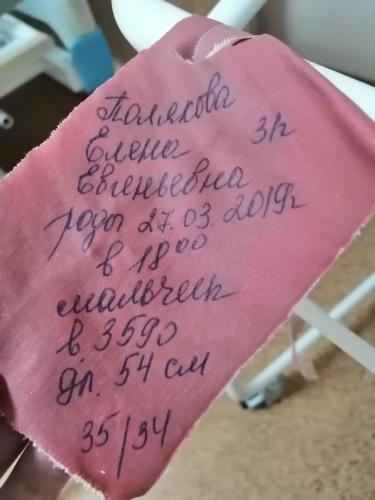 Полякова
Елена 3/р
Евгеньевна
роды 27.03.2019г
в 18 00
мальчик
в. 3590
дл. 54 см
35/34